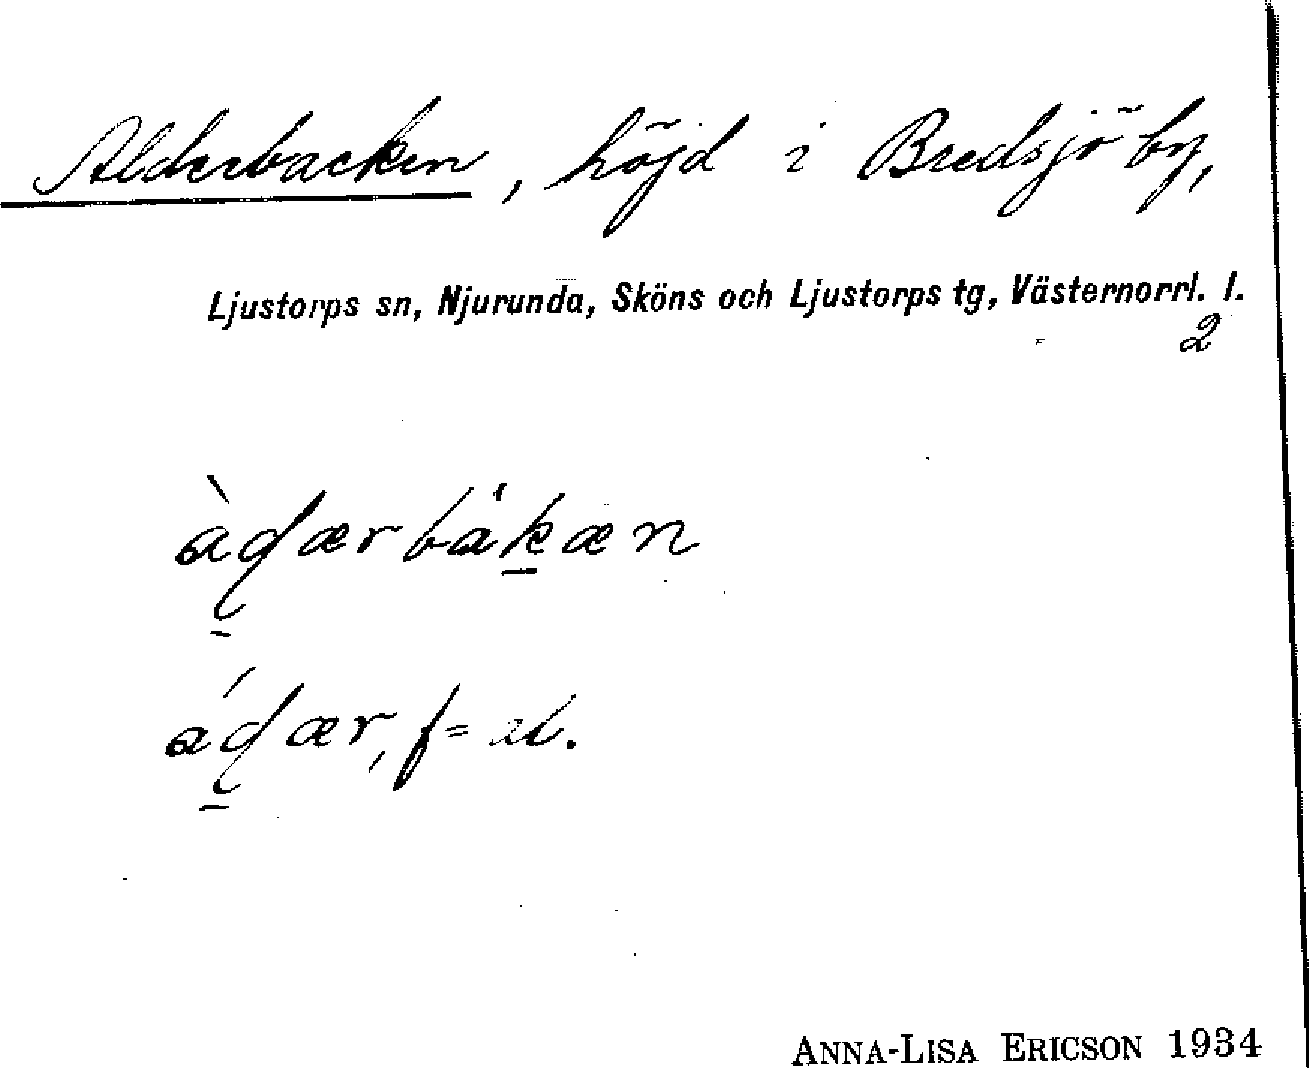 Alderbacken, höjd i Bredsjö by,
Ljustorps sn, Njurunda, Sköns och Ljustorps tg, Västernorrl. l.
2
àɖærbákæn
áɖær, f = al.
ANNA-LISA ERICSON 1934